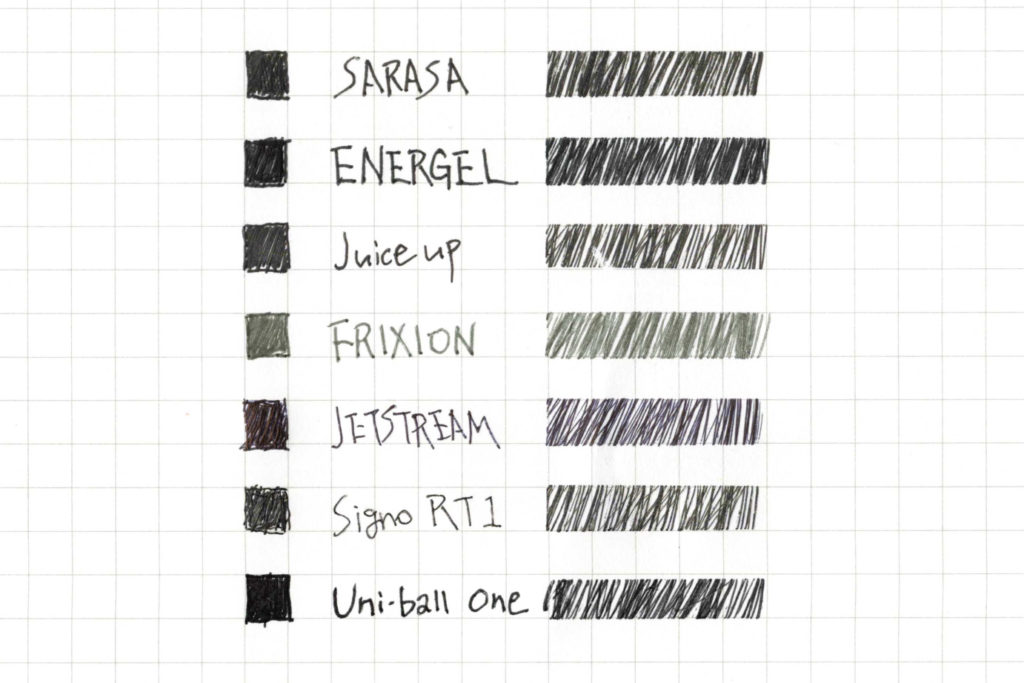 SARASA
ENERGEL
Juice up
FRIXION
JETSTREAM
Signo RT1
Uni-ball One